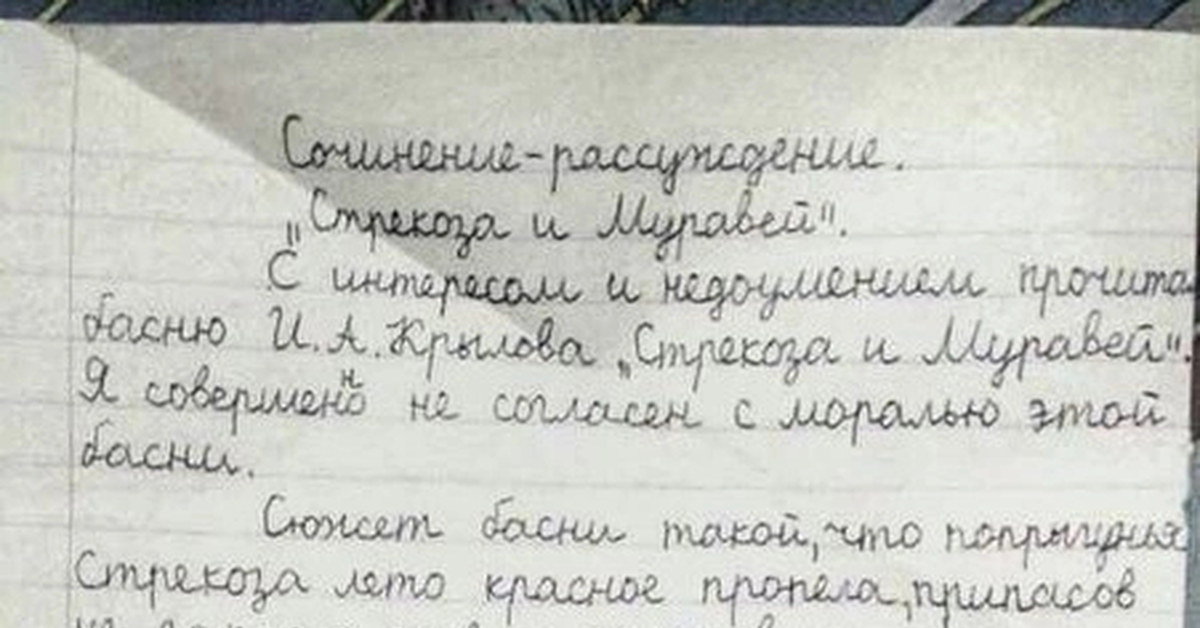 Сочинение-рассуждение.
„Стрекоза и Муравей".
С интересом и недоумением прочитал
басню И.А.Крылова „Стрекоза и Муравей".
Я совершенно не согласен с моралью этой
басни.
Сюжет басни такой, что попрыгунья
Стрекоза лето красное пропела, припасов
не